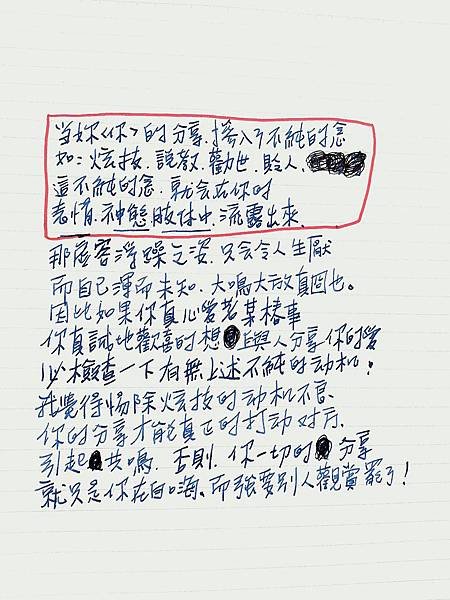 当妳<你>的分享.摻入了不純的念
如:炫技.說教.勸世.貶人.
這不純的念.就会在你的
表情.神態肢体中.流露出來.
那虛容浮躁之姿.只会令人生厭
而自己渾而未知.大鳴大放真囧也。
因此如果你真心愛著某樁事
你真誠地歡喜的想上與人分享你的愛
必檢查一下有無上述不純的动机!
我覺得惕除炫技的动机不良.
你的分享才能真正的打动对方.
引起共鳴.否則.你一切的分享
就只是你在自嗨.而強要別人觀賞罷了!